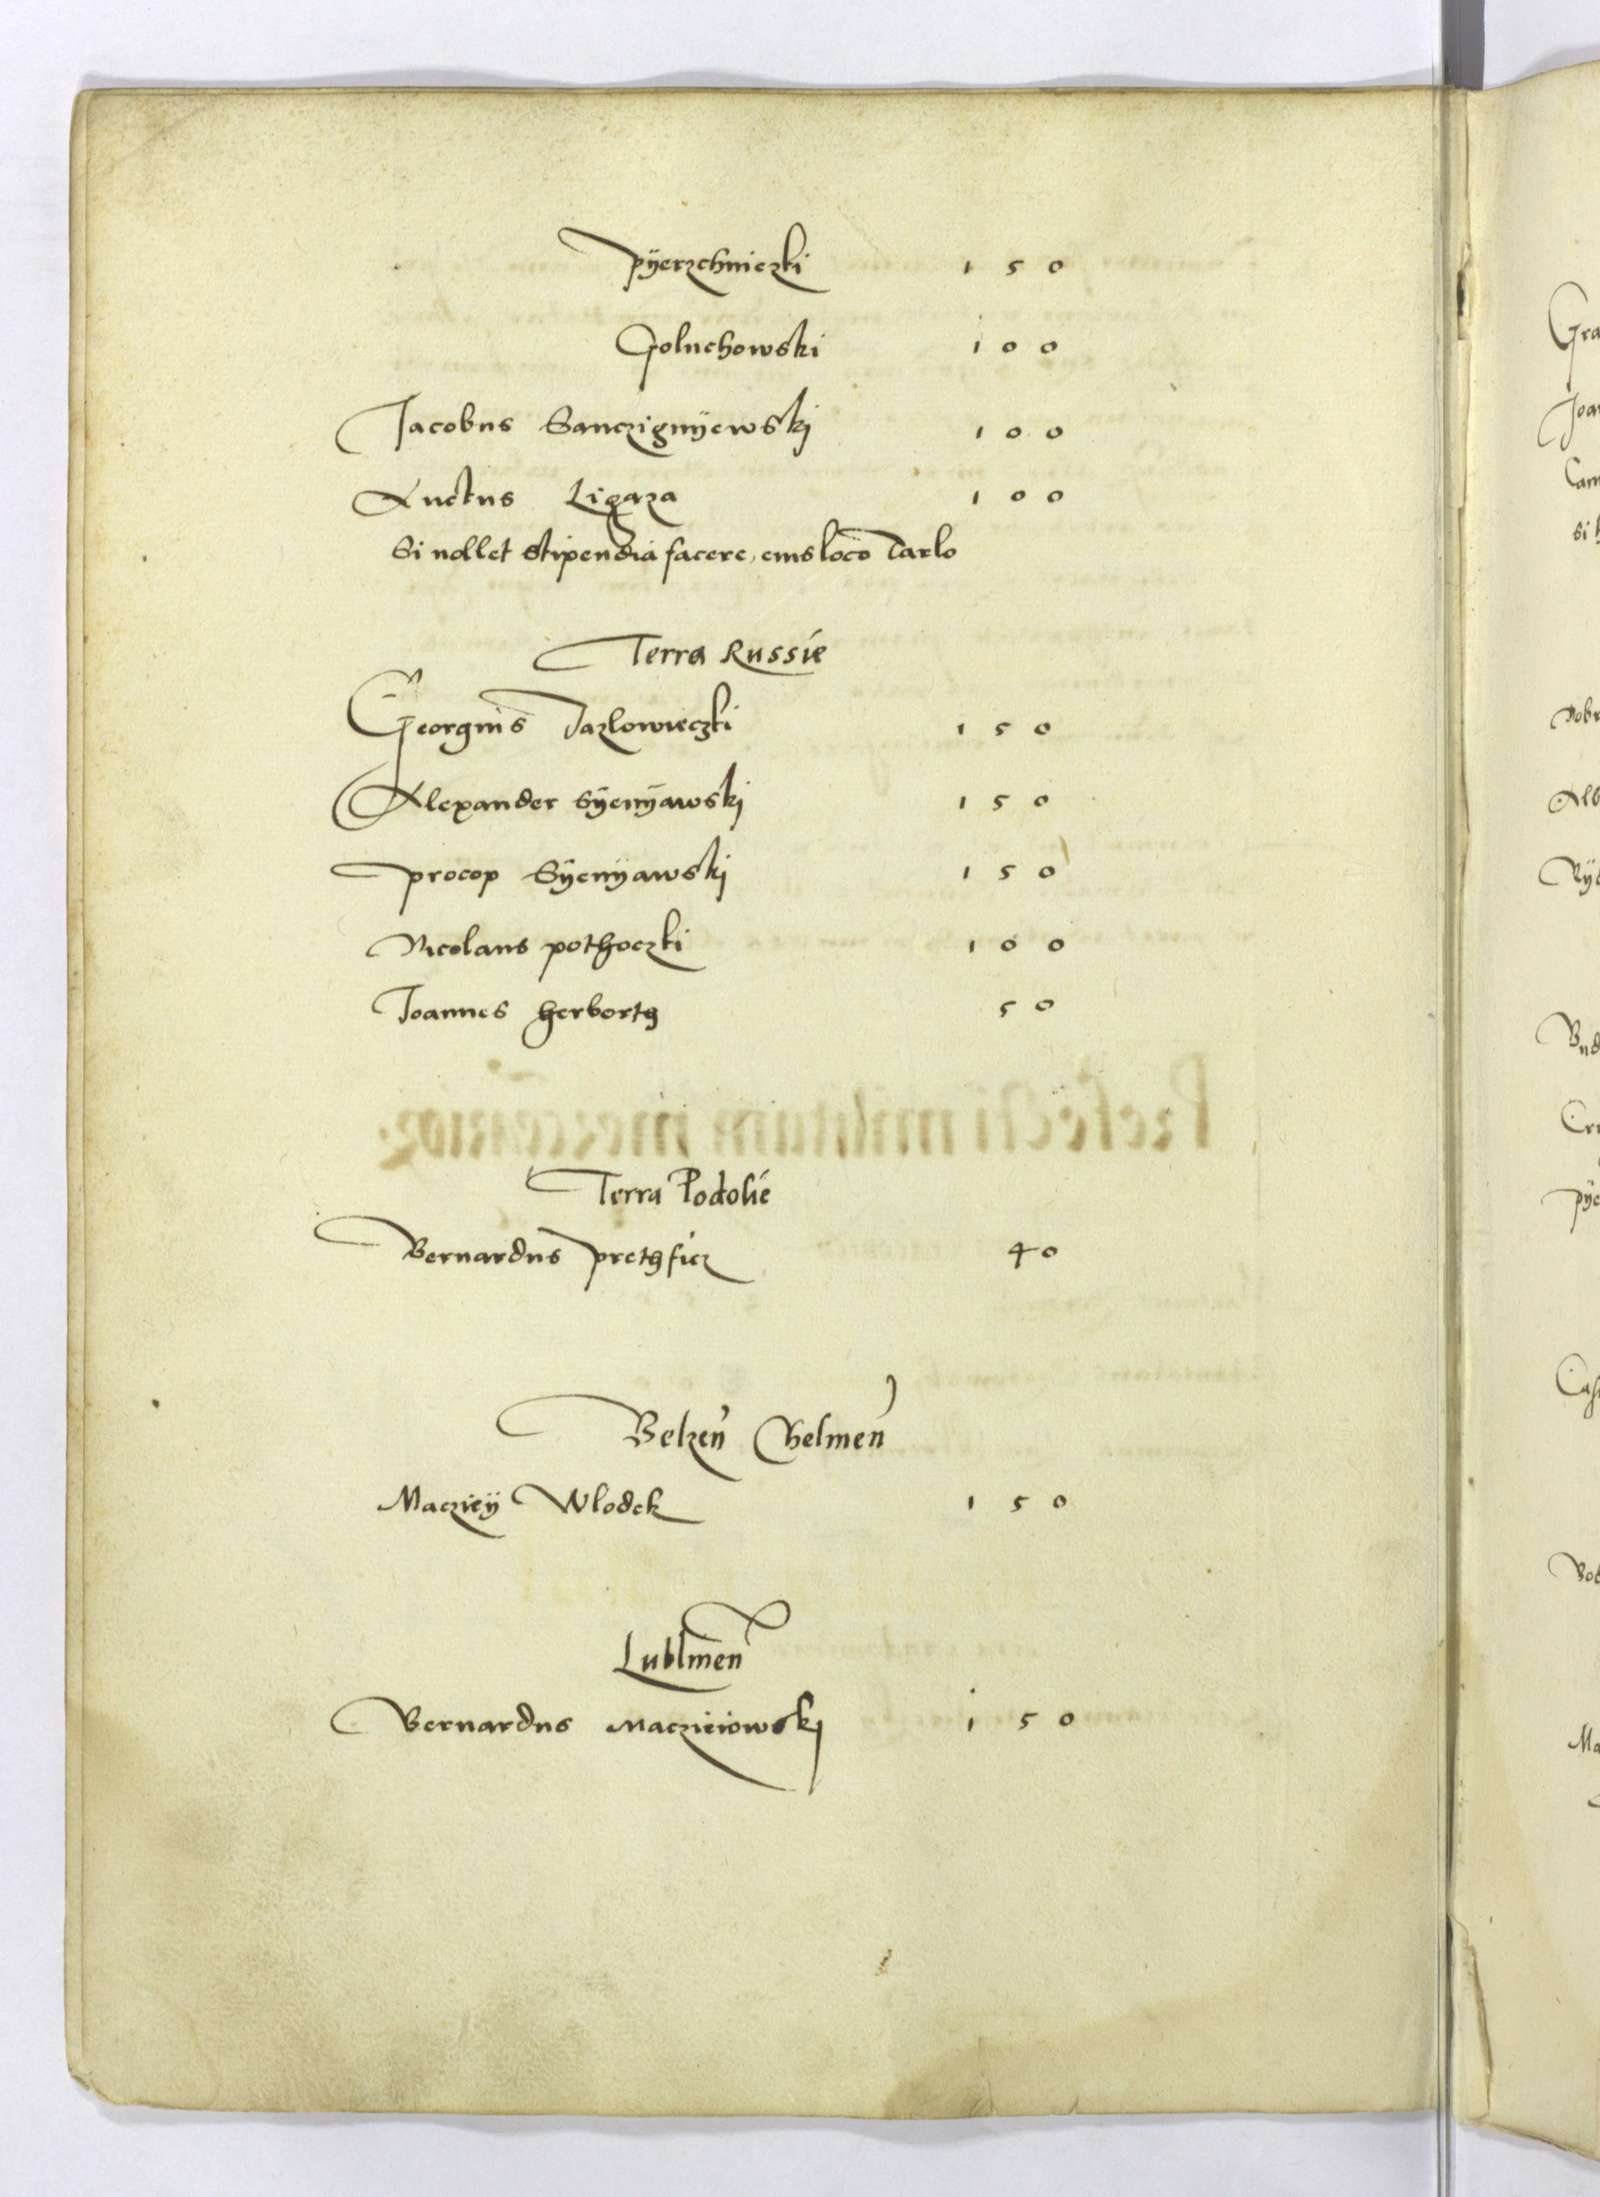 Pÿerzchniczki 1 5 0
Goluchowski 1 0 0
Jacobus Sanczignÿewskj 1 0 0
Auctus Ligaza 1 0 0
Si nollet stipendia facere, eius loco Tarlo
Terra Russie
Georgius Jazlowieczki 1 5 0
Alexander Sÿenÿawskj 1 5 0
Procop Sÿenÿawskj 1 5 0
Nicolaus pothoczki 1 0 0
Joannes herborth 5 0
Terra Podolie
Bernardus prethficz 4 0
Belzen Chelmen
Macziey Wlodek 1 5 0
Lublinen
Bernardus Maczieiowskj 1 5 0